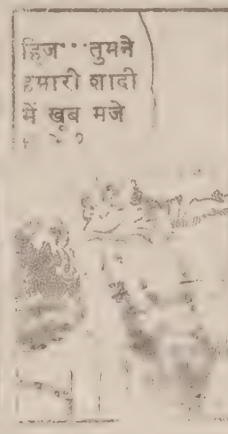 हिज···तुमने
हमारी शादी
में खूब मजे